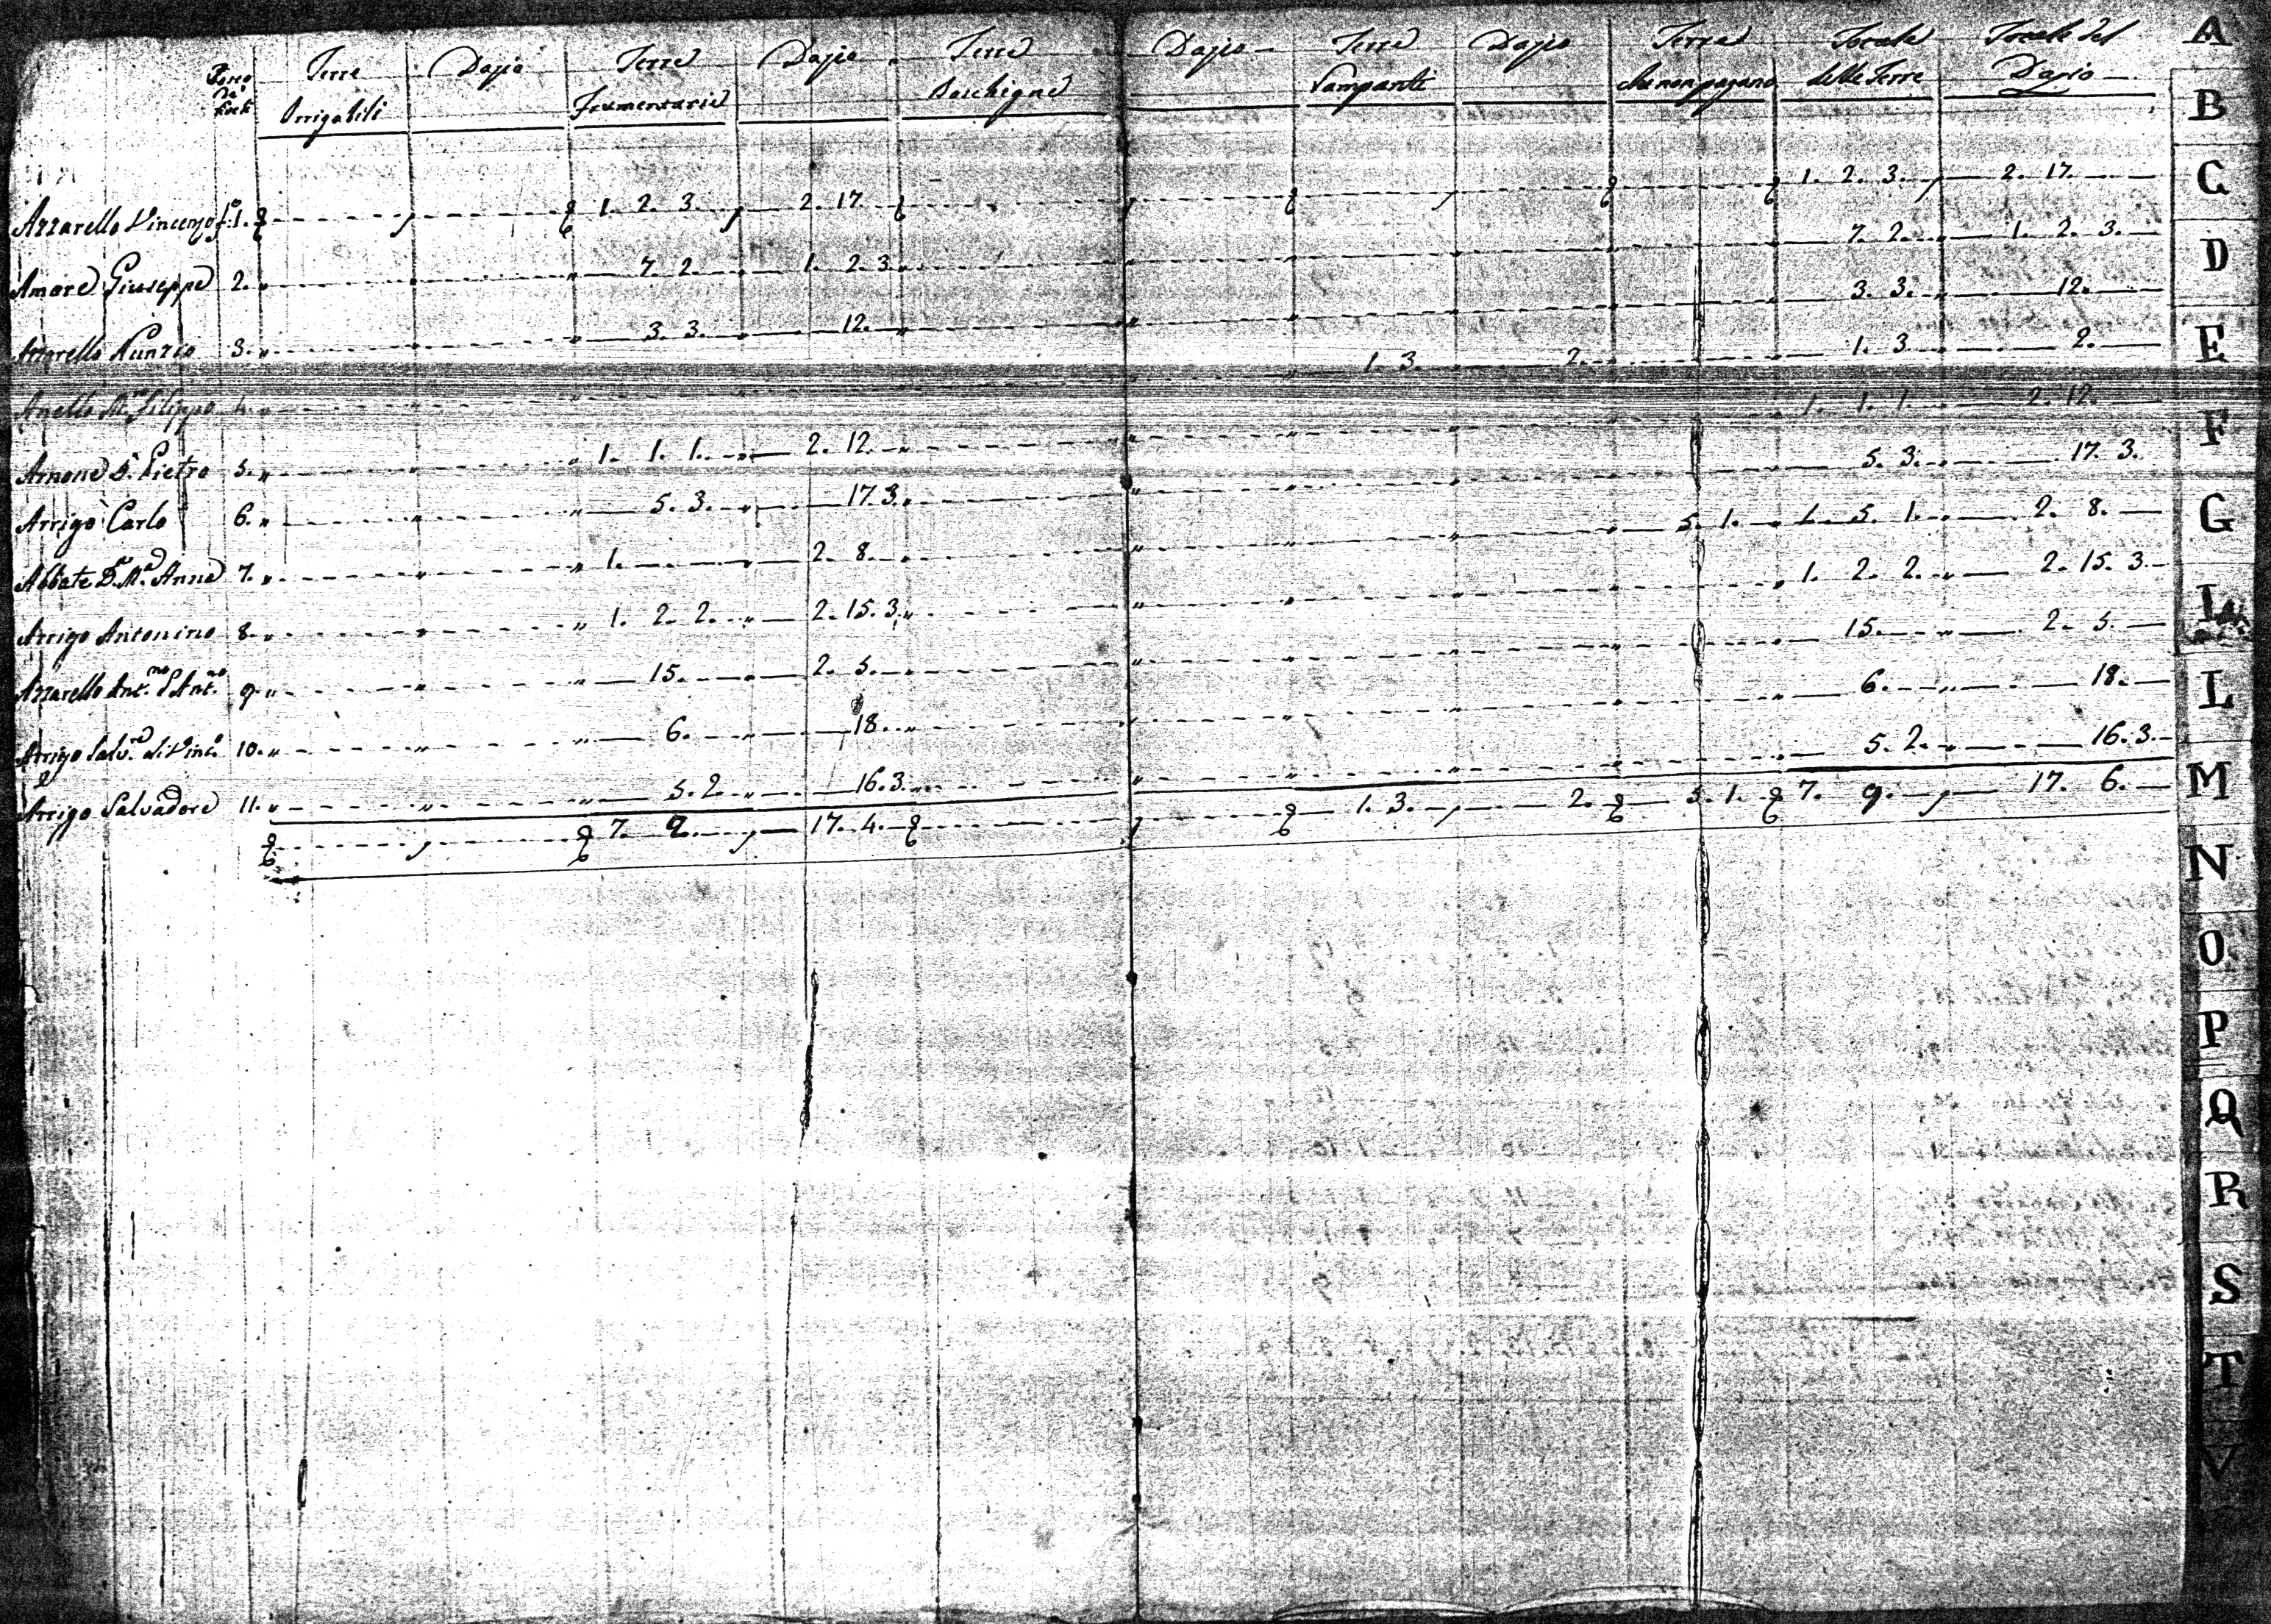 Terre Dazio Terre Dazio Terre Dazio Terre Dazio Terre Totale Totale del
Irrigabili Frumentarie Boschigne Vampante che non pagano delle Terre Dazio
Azzarello Vincenzo fo. 1. 1. 2. 3. 2. 17. 1. 2. 3. 2. 17.
Amore Giuseppe 2. 7. 2. 1. 2. 3. 7. 2. 1. 2. 3.
Azzarello Nunzio 3. 3. 3. 12. 3. 3. 12.
Anello Mro. Filippo 4. 1. 3. 2. 1. 3. 2.
Arnone Sr. Pietro 5. 1. 1. 1. 2. 12. 1. 1. 1. 2. 12.
Arrigo Carlo 6. 5. 3. 17. 3. 5. 3. 17. 3.
Abbate Da. Ma. Anna 7. 1. 2. 8. 5. 1. 1. 5. 1. 2. 8.
Arrigo Antonino 8. 1. 2. 2. 2. 15. 3. 1. 2. 2. 2. 15. 3.
Azzarello Ant.no 9. 15. 2. 5. 15. 2. 5.
Arrigo Salv.re di Vinc.o 10. 6. 18. 6. 18.
Arrigo Salvadore 11. 5. 2. 16. 3. 5. 2. 16. 3.
7. 2. 17. 4. 1. 3. 2. 5. 1. 7. 9. 17. 6.
A
B
C
D
E
F
G
I
L
M
N
O
P
Q
R
S
T
V